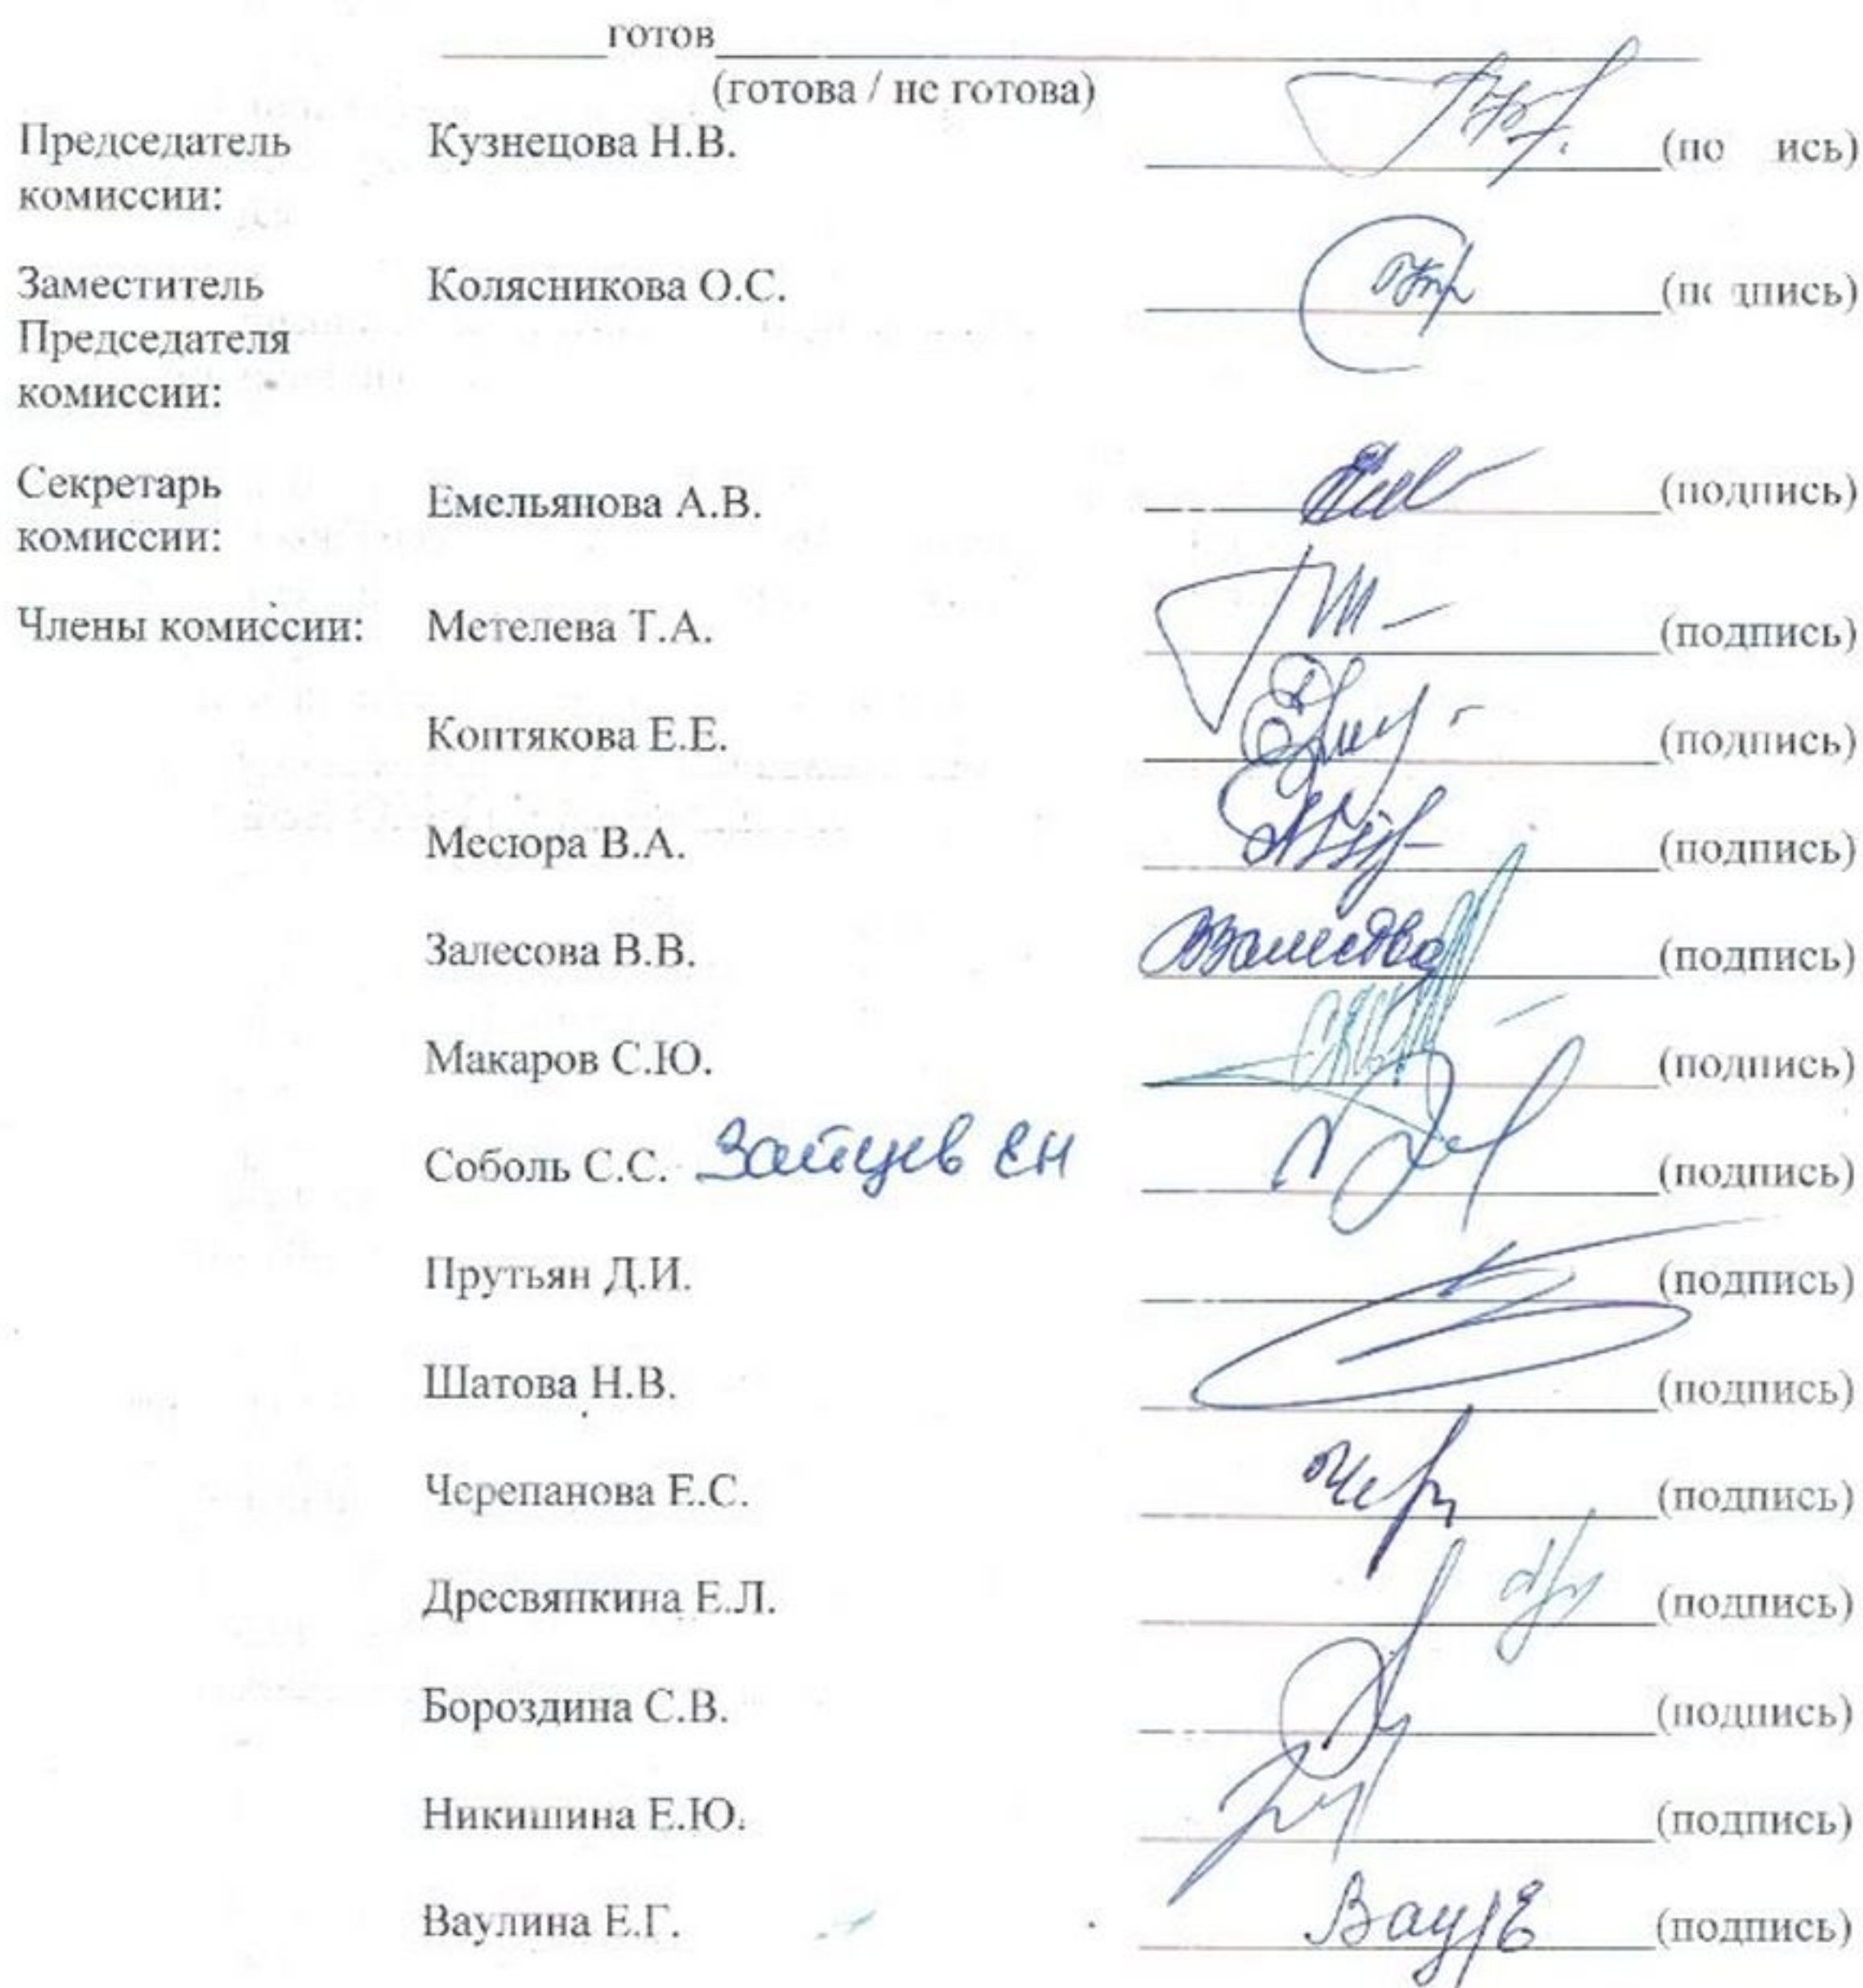 готов
(готова / не готова)
Председатель комиссии: Кузнецова Н.В. (по ись)
Заместитель Председателя комиссии: Колясникова О.С. (подпись)
Секретарь комиссии: Емельянова А.В. (подпись)
Члены комиссии: Метелева Т.А. (подпись)
Коптякова Е.Е. (подпись)
Месюра В.А. (подпись)
Залесова В.В. (подпись)
Макаров С.Ю. (подпись)
Соболь С.С. Зайцев ЕН (подпись)
Прутьян Д.И. (подпись)
Шатова Н.В. (подпись)
Черепанова Е.С. (подпись)
Дресвянкина Е.Л. (подпись)
Бороздина С.В. (подпись)
Никишина Е.Ю. (подпись)
Ваулина Е.Г. (подпись)